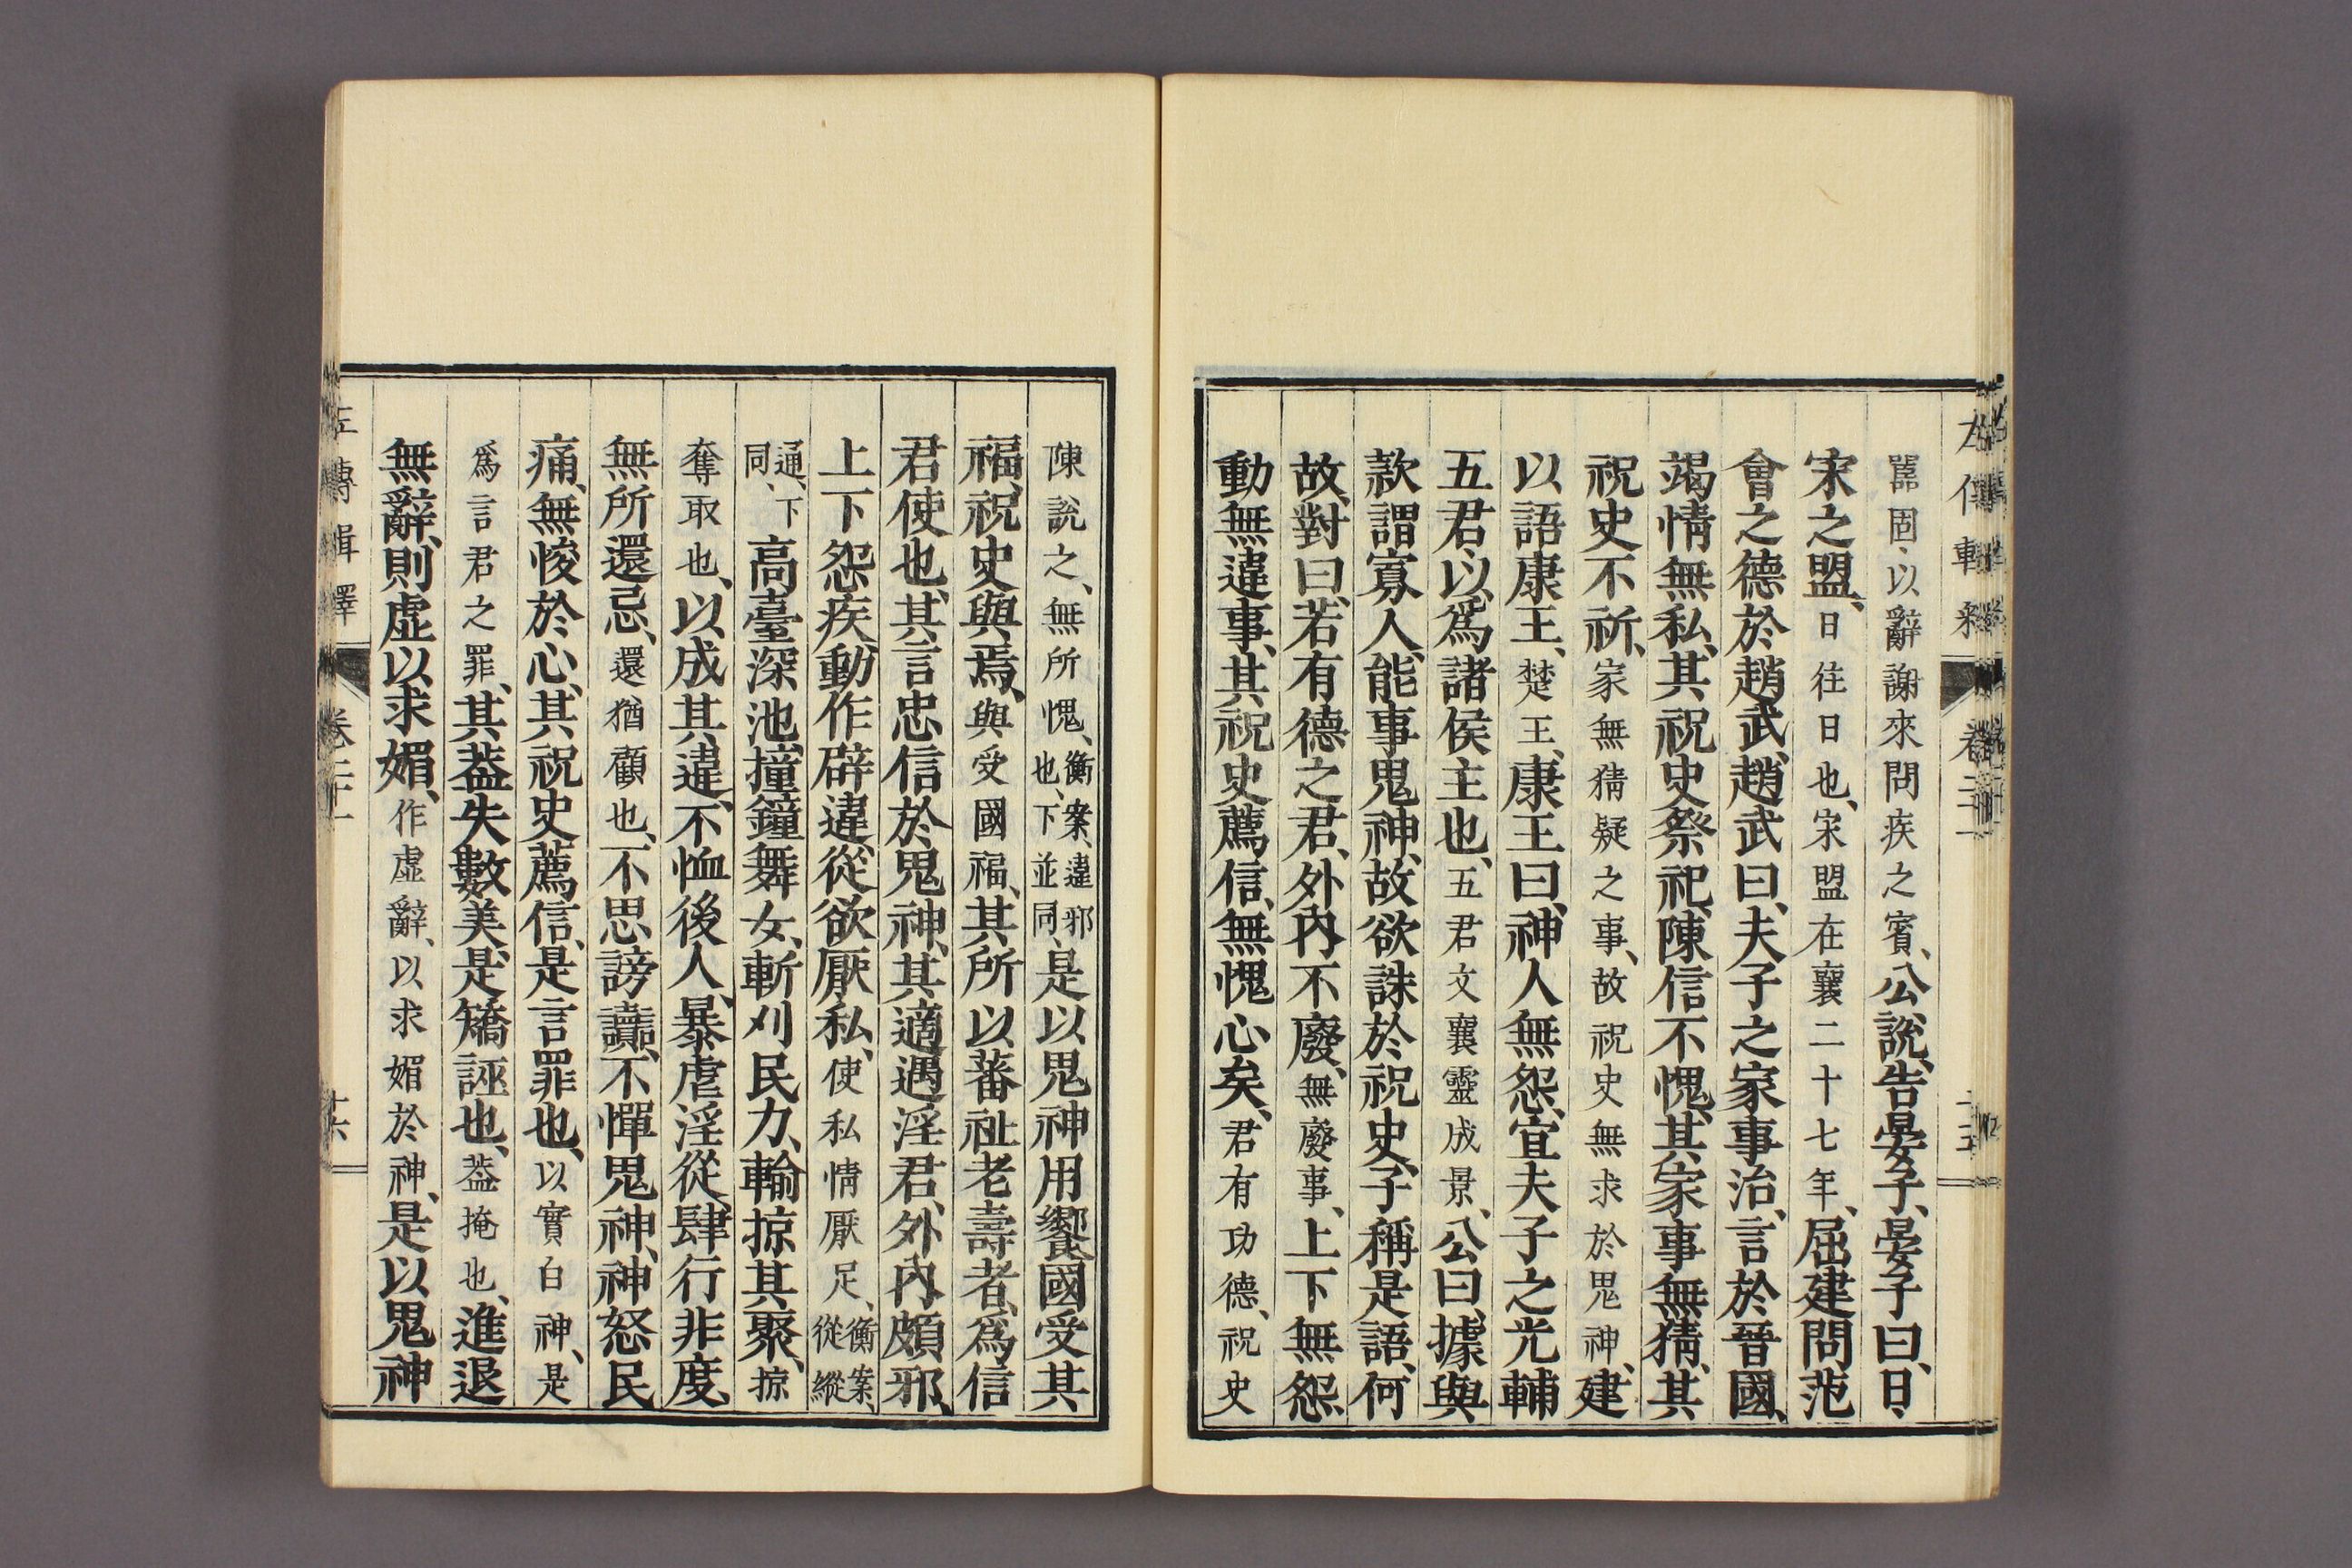 嚚固、以辭謝來問疾之賓、公說、告晏子、晏子曰、日
宋之盟、日往日也、宋盟在襄二十七年、屈建問范
會之德於趙武、趙武曰、夫子之家事治、言於晉國、
竭情無私、其祝史祭祀、陳信不愧、其家事無猜、其
祝史不祈、家無猜疑之事、故祝史無求於鬼神、建
以語康王、楚王、康王曰、神人無怨、宜夫子之光輔
五君、以爲諸侯主也、五君文襄靈成景、公曰、據與
款謂寡人、能事鬼神、故欲誅於祝史、子稱是語、何
故、對曰、若有德之君、外內不廢、無廢事、上下無怨
動無違事、其祝史薦信、無愧心矣、君有功德、祝史
陳說之、無所愧、衡案、違邪也、下並同、是以鬼神用饗國受其
福、祝史與焉、與受國福、其所以蕃祉老壽者、爲信
君使也、其言忠信於鬼神、其適遇淫君、外內頗邪、
上下怨疾、動作辟違、從欲厭私、使私情厭足、衡案、從縱
通、下同、高臺深池、撞鐘舞女、斬刈民力、輸掠其聚、掠
奪取也、以成其違、不恤後人、暴虐淫從、肆行非度、
無所還忌、還猶顧也、不思謗讟、不憚鬼神、神怒民
痛、無悛於心、其祝史薦信、是言罪也、以實白神、是
爲言君之罪、其葢失數美、是矯誣也、葢掩也、進退
無辭、則虛以求媚、作虛辭、以求媚於神、是以鬼神
左傳輯釋
卷二十一
十六